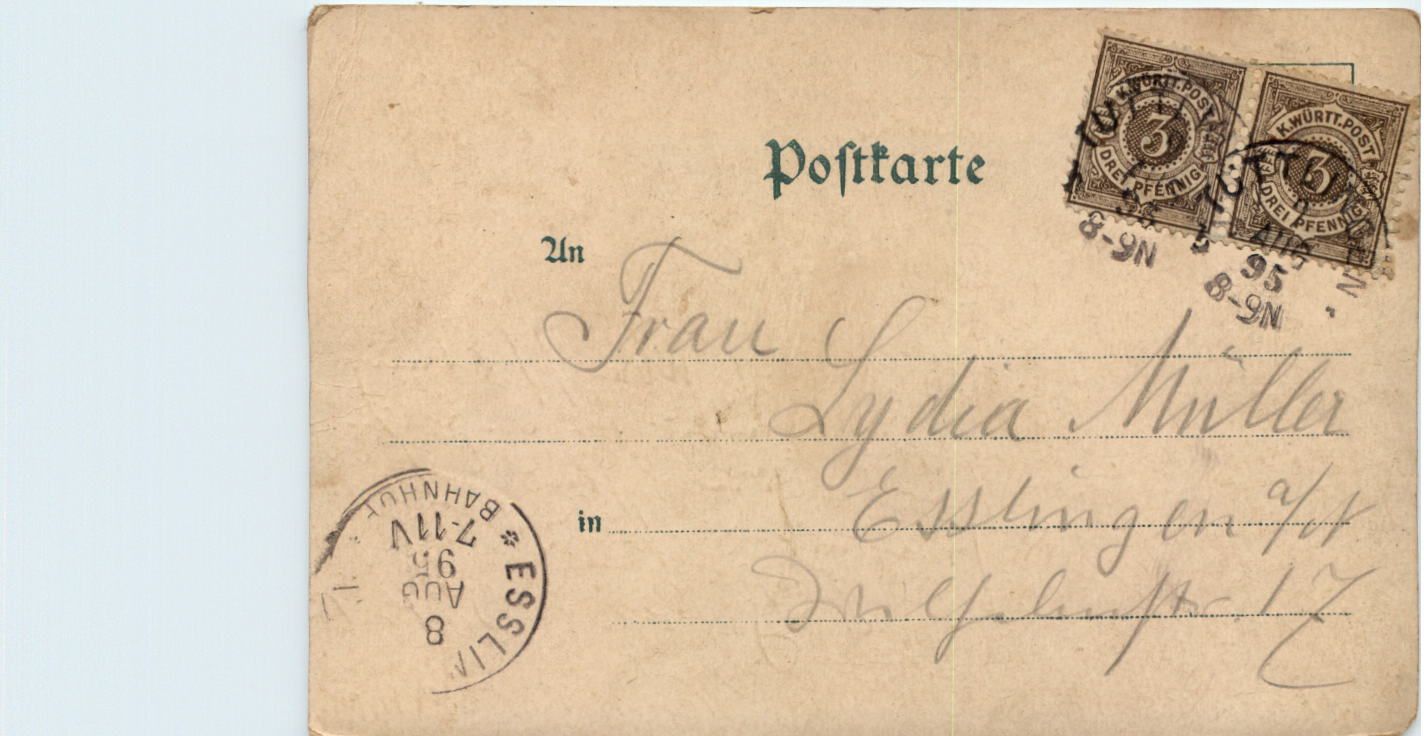 K.WÜRTT.POST
3
DREI PFENNIG
K.WÜRTT.POST
3
DREI PFENNIG
TUTTLINGEN
AUG
95
8-9N
8-9N
Postkarte
An
Frau
Lydia Müller
in Esslingen a/N
Wilhelmstr. 17
ESSLIN
BAHNHOF
8
AUG
95
7-11V